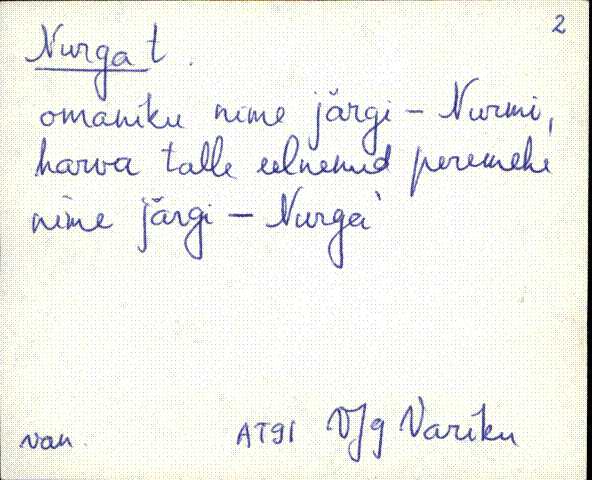 2
Nurga t.
omaniku nime järgi – Nurmi,
harva talle eelnenud peremehe
nime järgi – Nurga`
van. AT91 VJg Variku